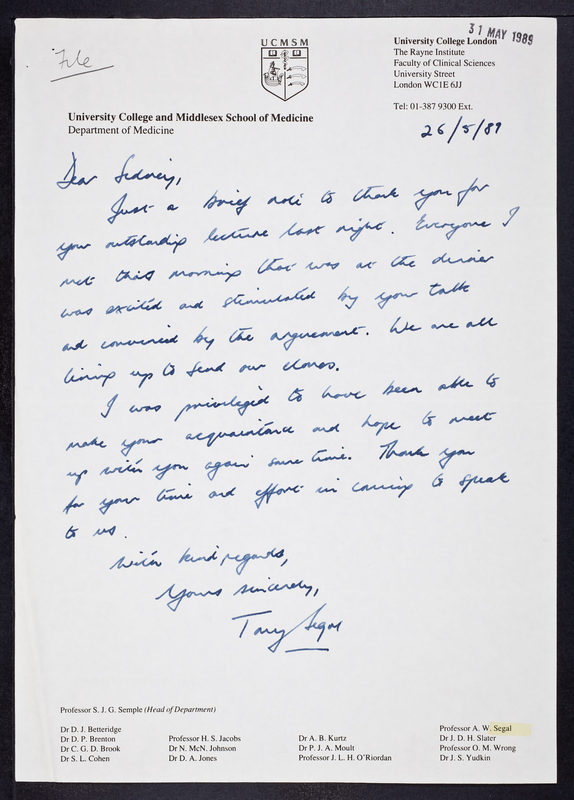 File
UCMSM
University College London
31 MAY 1989
The Rayne Institute
Faculty of Clinical Sciences
University Street
London WC1E 6JJ
Tel: 01-387 9300 Ext.
University College and Middlesex School of Medicine
Department of Medicine
26/5/89
Dear Sidney,
Just a brief note to thank you for
your outstanding lecture last night. Everyone I
met this morning that was at the dinner
was excited and stimulated by your talk
and convinced by the arguement. We are all
lining up to send our clones.
I was privileged to have been able to
make your acquaintance and hope to meet
up with you again some time. Thank you
for your time and effort in coming to speak
to us.
With kind regards,
Yours sincerely,
Tony Segal
Professor S. J. G. Semple (Head of Department)
Dr D. J. Betteridge
Dr D. P. Brenton
Dr C. G. D. Brook
Dr S. L. Cohen
Professor H. S. Jacobs
Dr N. McN. Johnson
Dr D. A. Jones
Dr A. B. Kurtz
Dr P. J. A. Moult
Professor J. L. H. O'Riordan
Professor A. W. Segal
Dr J. D. H. Slater
Professor O. M. Wrong
Dr J. S. Yudkin